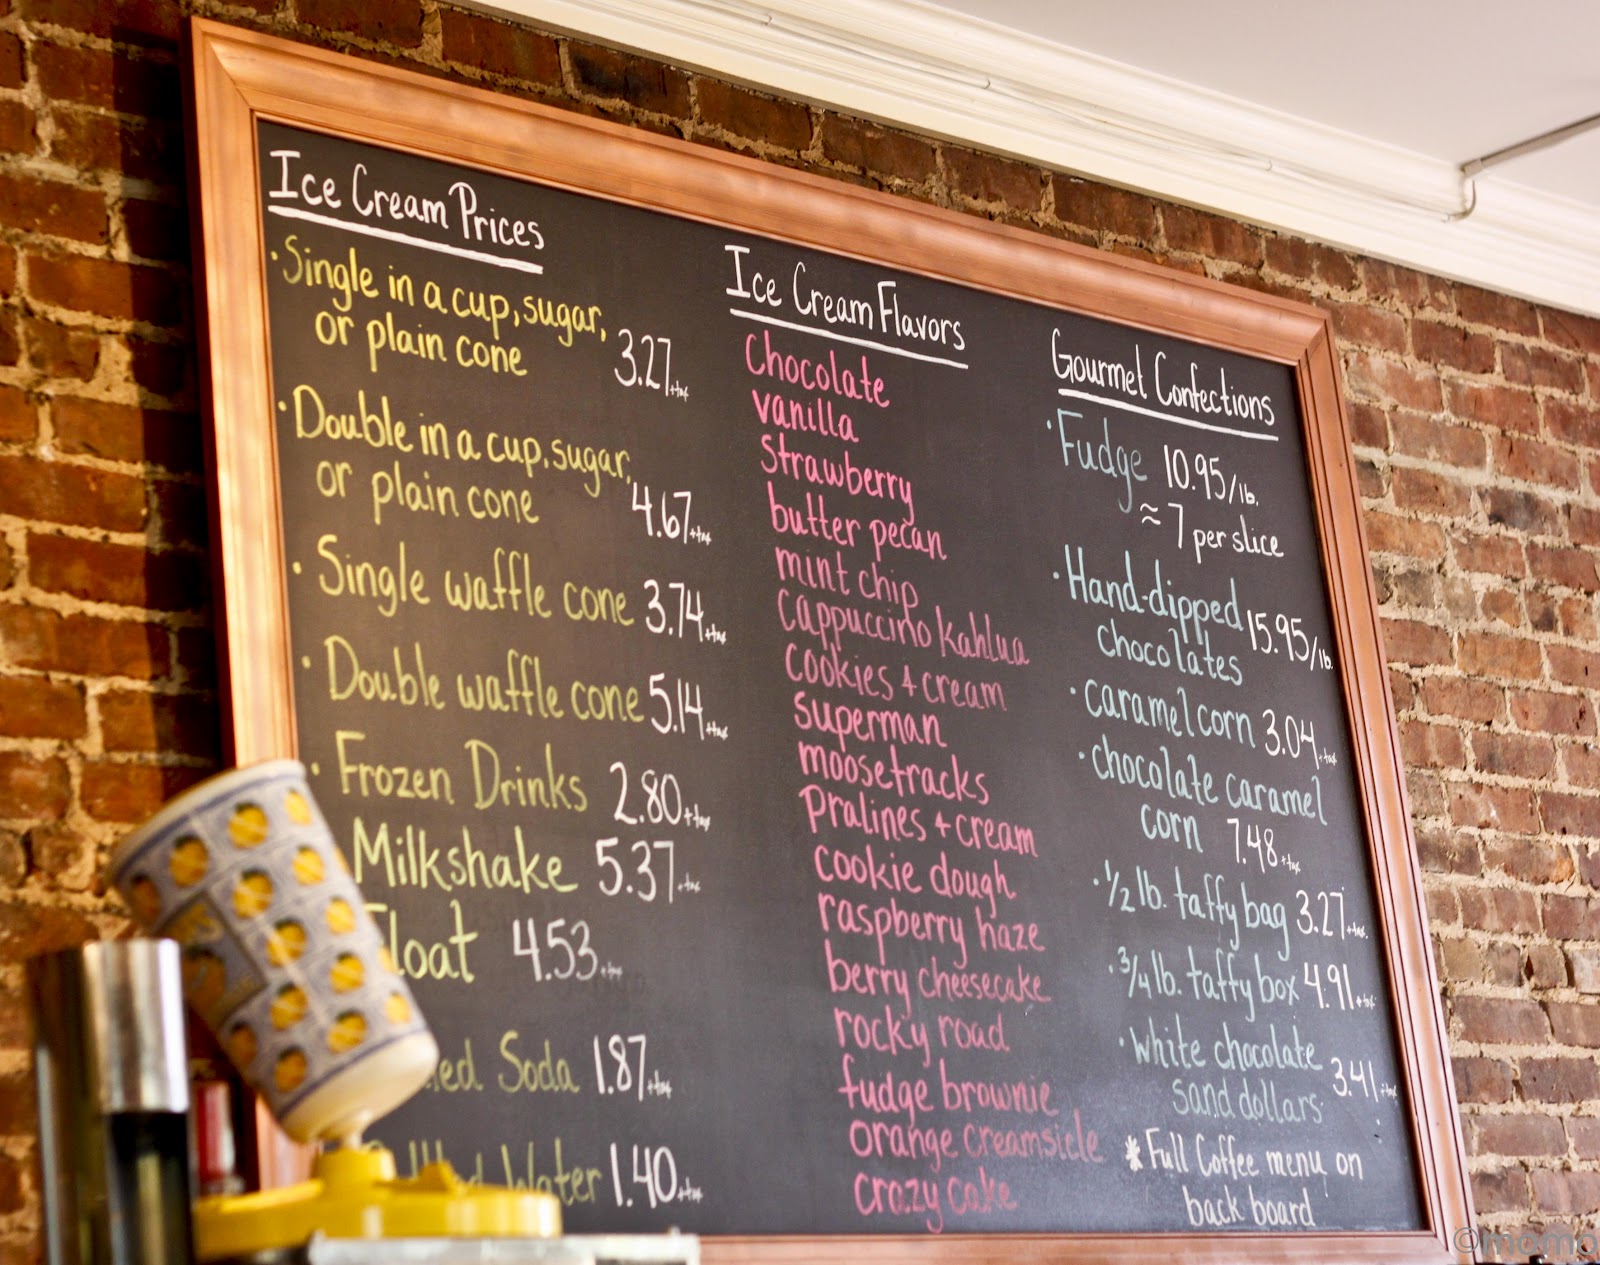 Ice Cream Prices
· Single in a cup, sugar,
or plain cone 3.27 +tax
· Double in a cup, sugar,
or plain cone 4.67 +tax
· Single waffle cone 3.74 +tax
· Double waffle cone 5.14 +tax
· Frozen Drinks 2.80 +tax
Milkshake 5.37 +tax
Float 4.53 +tax
Soda 1.87 +tax
Water 1.40 +tax
Ice Cream Flavors
Chocolate
vanilla
Strawberry
butter pecan
mint chip
cappuccino kahlua
cookies + cream
superman
moosetracks
Pralines + cream
cookie dough
raspberry haze
berry cheesecake
rocky road
fudge brownie
orange creamsicle
crazy cake
Gourmet Confections
· Fudge 10.95/lb.
≈ 7 per slice
· Hand-dipped
chocolates 15.95/lb.
· caramel corn 3.04 +tax
· chocolate caramel
corn 7.48 +tax
· 1/2 lb. taffy bag 3.27 +tax
· 3/4 lb. taffy box 4.91 +tax
· white chocolate
sand dollars 3.41 +tax
* Full Coffee menu on
back board
©momo